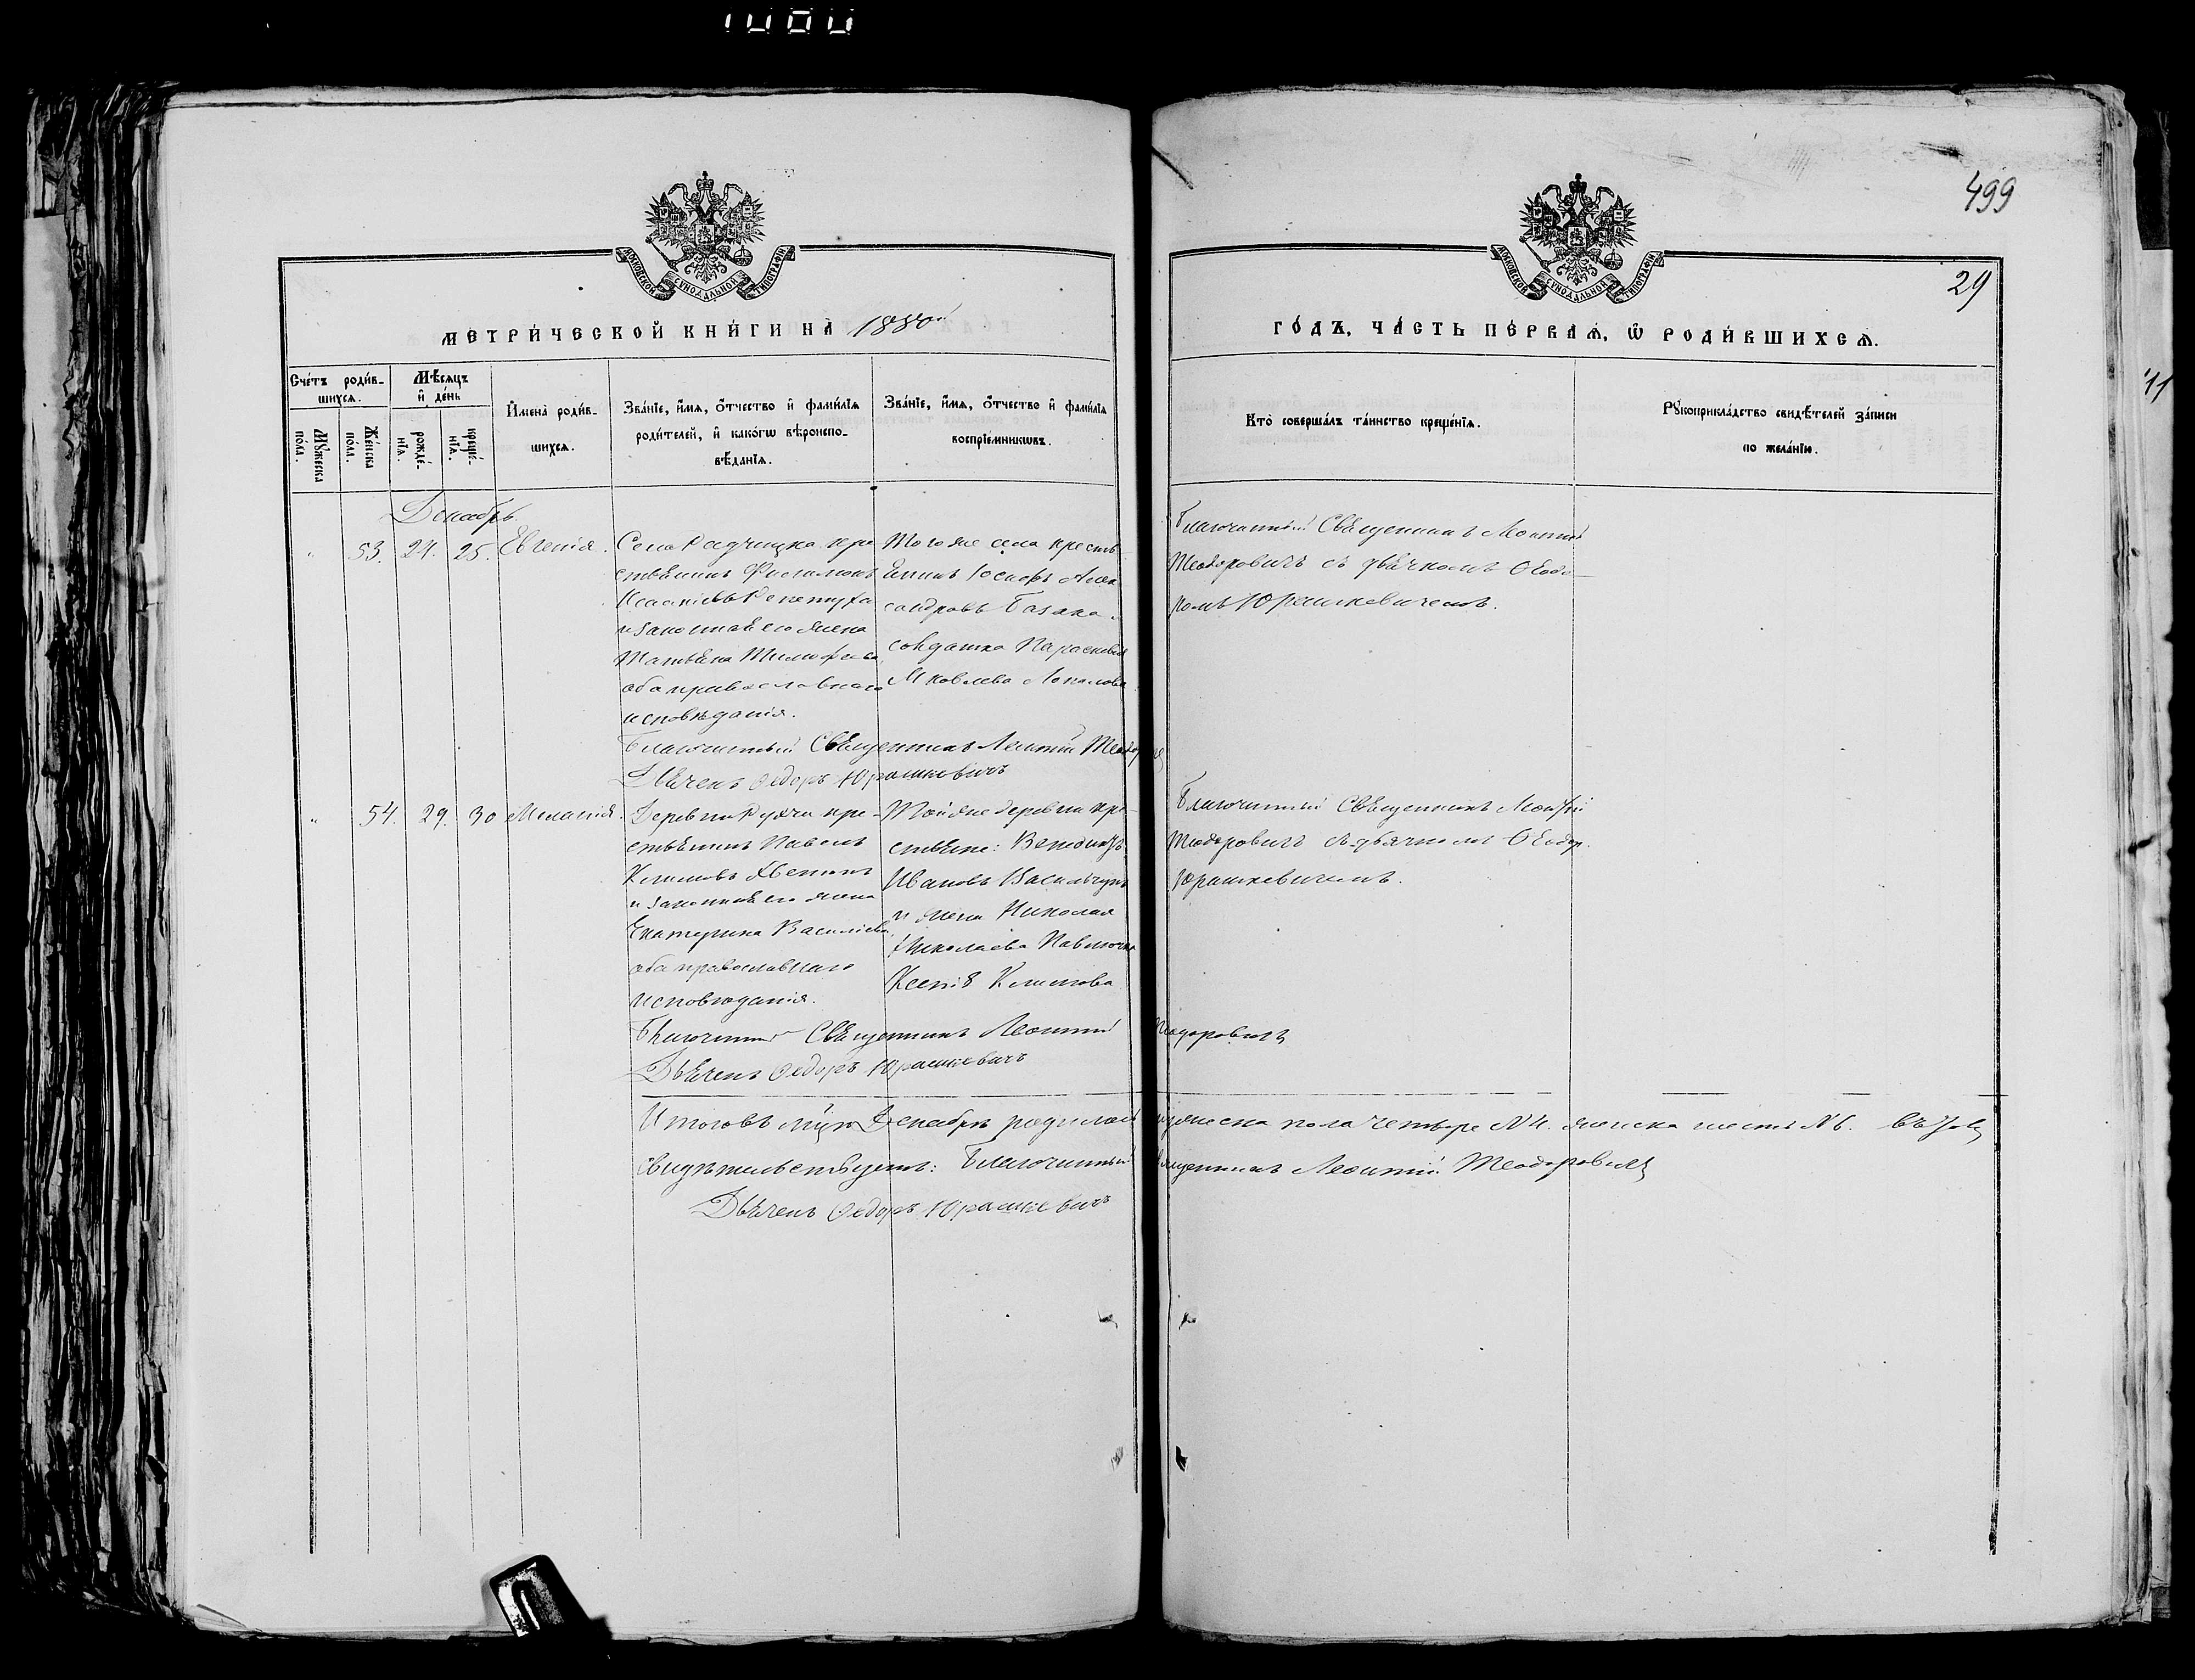 499
29
МЕТРИЧЕСКОЙ КНИГИ НА 1880й
ГОДЪ, ЧАСТЬ ПЕРВАЯ, Ѡ РОДИВШИХСЯ.
МОСКОВСКОЙ СѴНОДАЛЬНОЙ ТИПОГРАФІИ
МОСКОВСКОЙ СѴНОДАЛЬНОЙ ТИПОГРАФІИ
Счетъ родив-
шихся.
Мужеска пола.
Женска пола.
Мѣсяцъ и день
рожде-
нія.
креще-
нія.
Имена родив-
шихся.
Званіе, имя, отчество и фамилія
родителей, и какогѡ вѣроиспо-
вѣданія.
Званіе, имя, отчество и фамилія
воспріемникѡвъ.
Кто совершалъ таинство крещенія.
Рукоприкладство свидѣтелей записи
по желанію.
Декабрь.
53. 24. 25. Евгенія.
Села Радчицка кре
стьянинъ Филимонъ
и законная его жена
Татьяна Тимофѣева
оба православнаго
исповѣданія.
Того же села кресть
янинъ Іосифъ Алек
сандровъ Базака.
солдатка Параскевія
Яковлева
Благочинный Священникъ Леонтій
Теодоровичъ съ дьячкомъ Ѳеодо-
ромъ Юрашкевичемъ.
Благочинный Священникъ Леонтій
Дьячекъ Ѳедоръ Юрашкевичъ
54. 29. 30 Меланія.
Деревни кре-
стьянинъ Павелъ
Климовъ
и законная его жена
Екатерина Василіева
оба православнаго
исповѣданія.
Той же деревни кре-
стьяне:
Ивановъ
и жена Николая
Николаева
Ксенія Климова
Благочинный Священникъ Леонтій
Теодоровичъ съ дьячкомъ Ѳеодор.
Юрашкевичемъ.
Благочинный Священникъ Леонтій Теодоровичъ
Дьячекъ Ѳедоръ Юрашкевичъ
Итого въ Декабрѣ родилось мужеска пола четыре № 4. женска шесть № 6.
свидѣтельствуемъ: Благочинный Священникъ Леонтій Теодоровичъ
Дьячекъ Ѳедоръ Юрашкевичъ